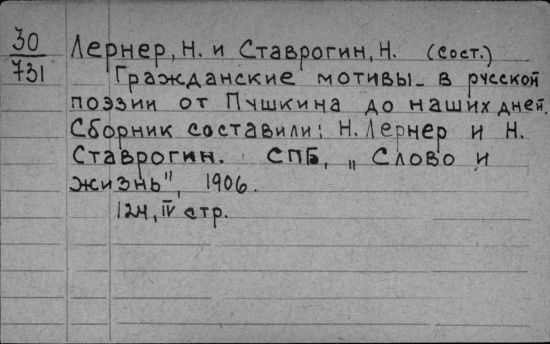 30
731
Лернер, Н. и Ставрогин, Н. (сост.)
Гражданские мотивы в русской
поэзии от Пушкина до наших дней.
Сборник составили: Н. Лернер и Н.
Ставрогин. СПБ, „Слово и
жизнь", 1906.
124, IV стр.